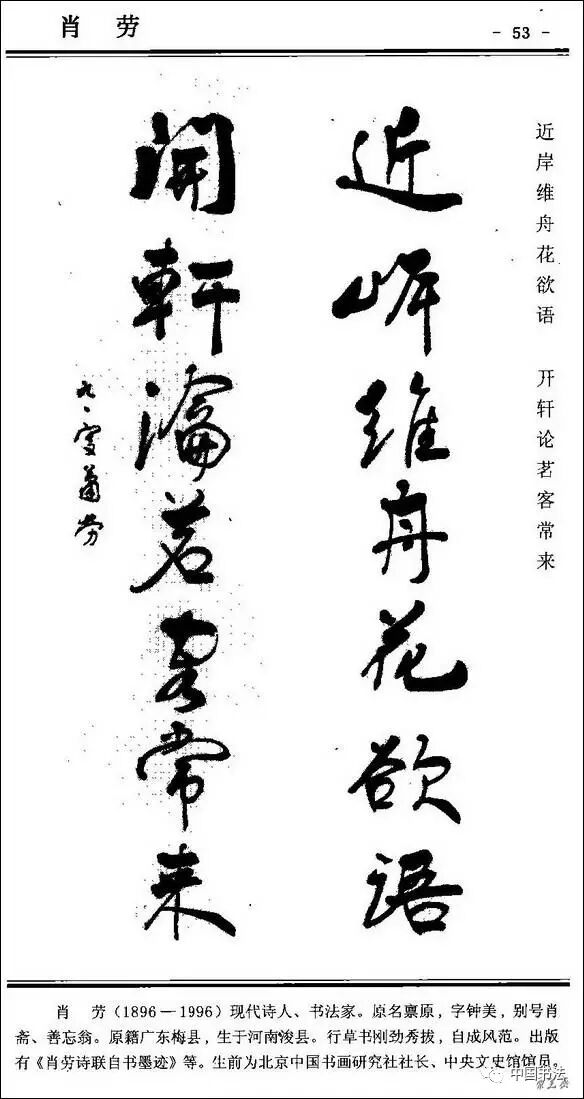 肖 劳
- 53 -
近岸维舟花欲语 开轩论茗客常来
近岸維舟花欲語
開軒瀹茗客常来
九〇叟蕭勞
肖 劳(1896—1996)现代诗人、书法家。原名禀原,字钟美,别号肖
斋、善忘翁。原籍广东梅县,生于河南浚县。行草书刚劲秀拔,自成风范。出版
有《肖劳诗联自书墨迹》等。生前为北京中国书画研究社社长、中央文史馆馆员。
中国书法